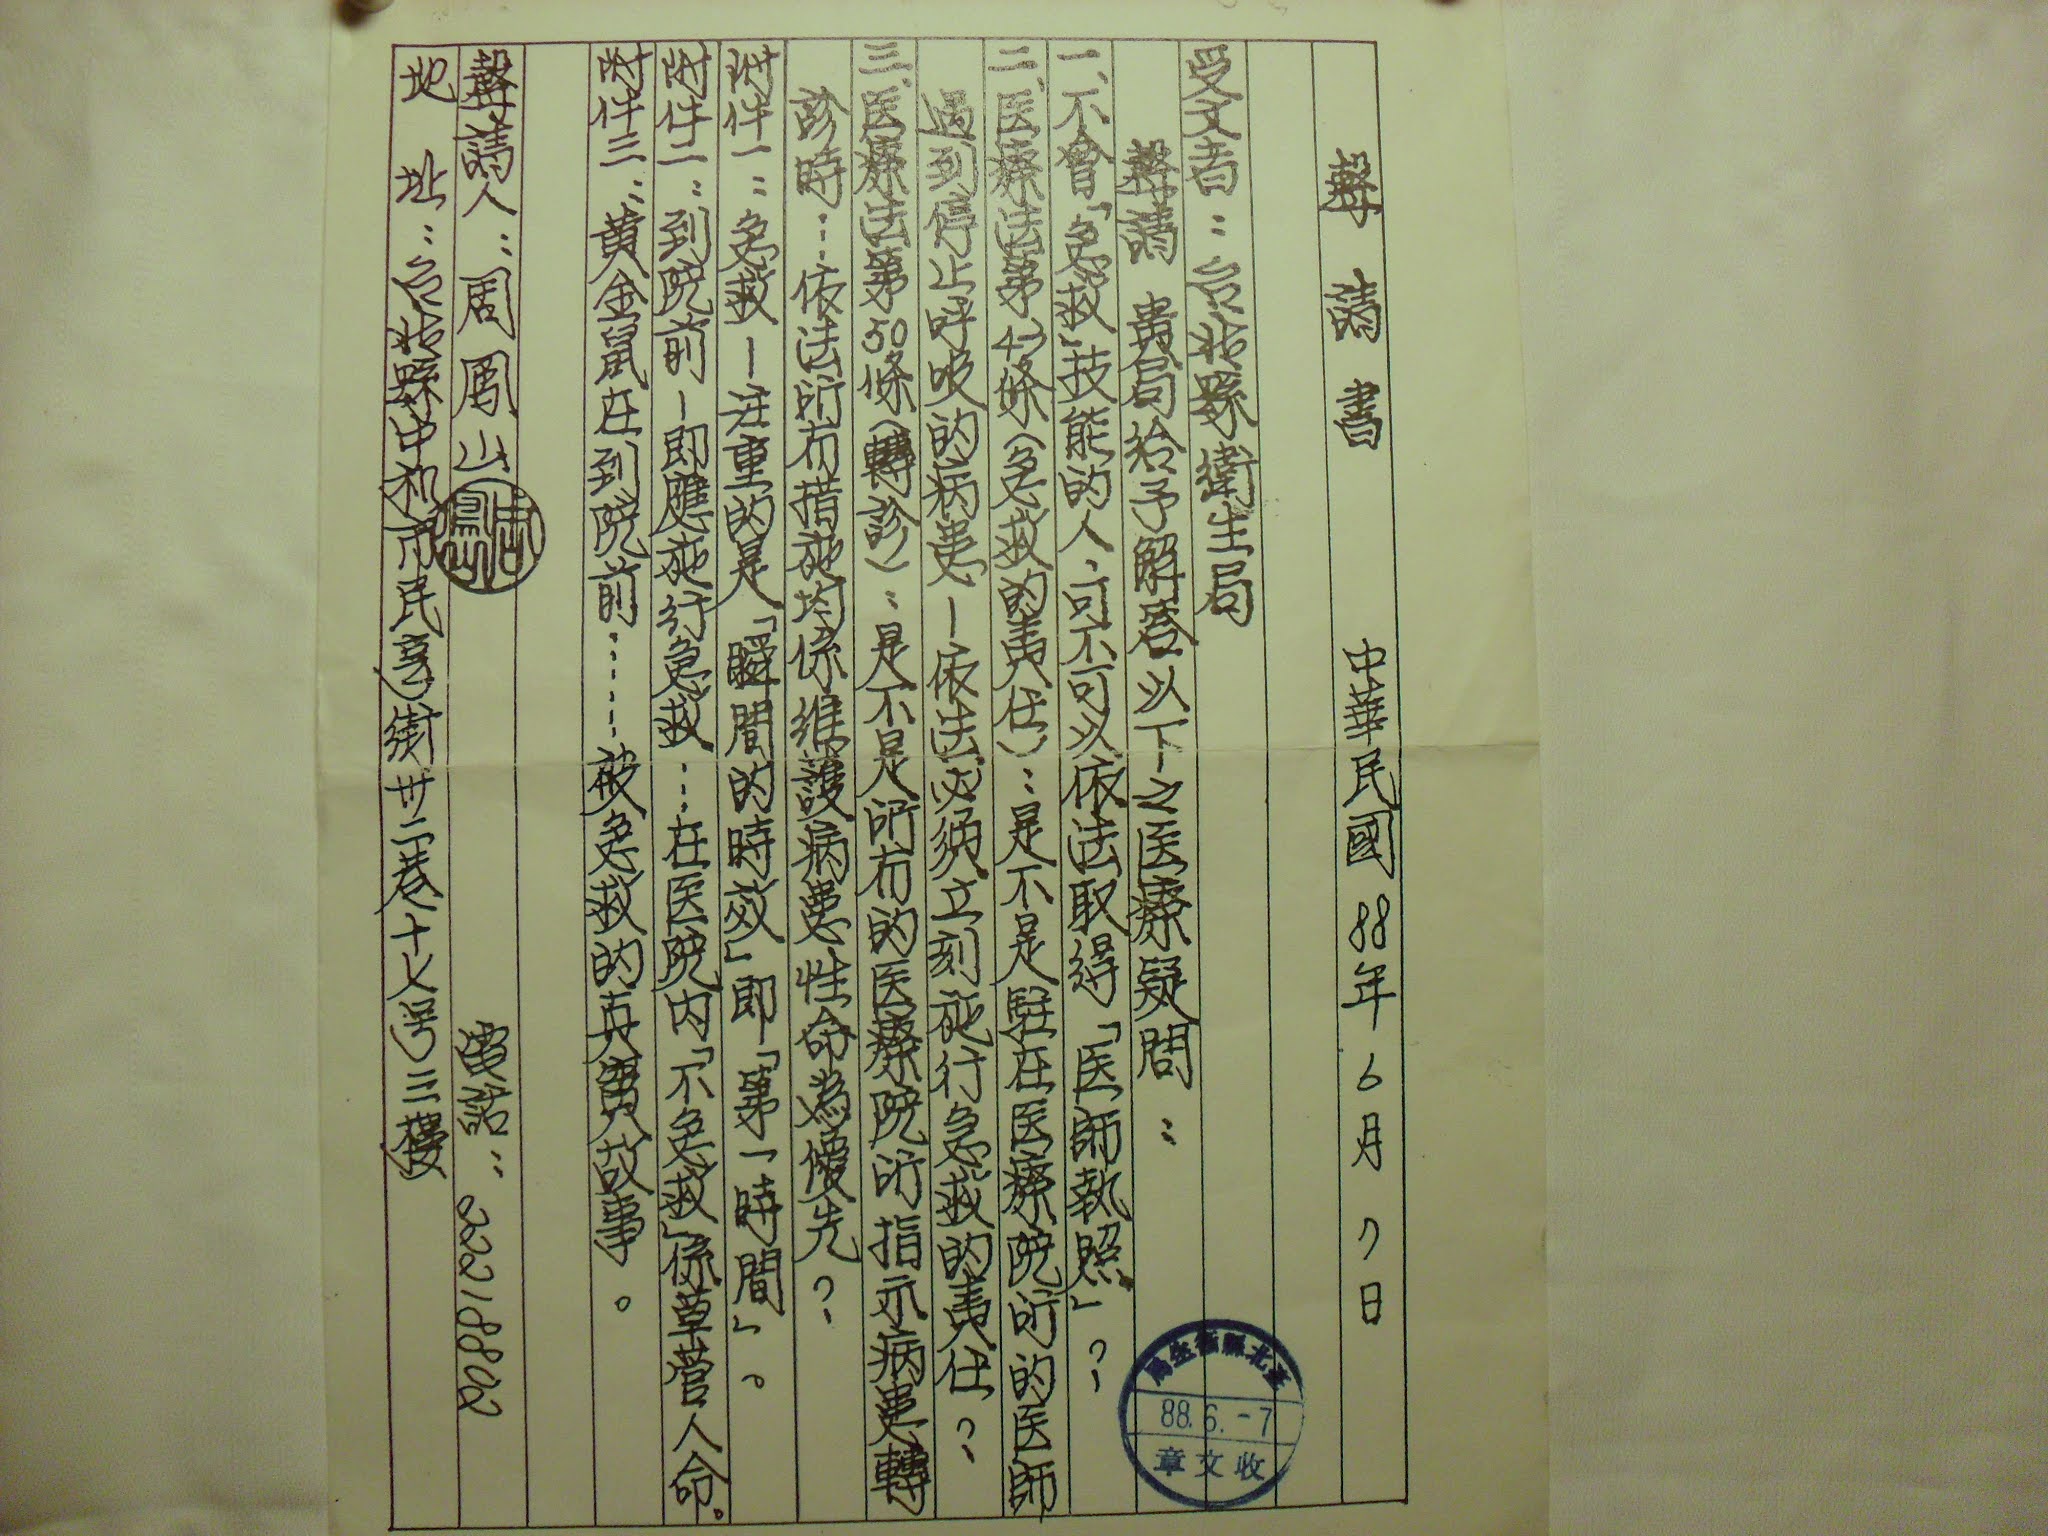 聲請書　　中華民國88年6月7日
受文者：台北縣衛生局
聲請　貴局給予解答以下之医療疑問：
一、不會「急救」技能的人，可不可以依法取得「医師執照」？
二、医療法第43條（急救的責任）：是不是駐在医療院所的医師
遇到停止呼吸的病患－依法必須立刻施行急救的責任？
三、医療法第50條（轉診）：是不是所有的医療院所指示病患轉
診時…依法所有措施均係維護病患性命為優先？
附件一：急救－注重的是「瞬間的時效」即「第一時間」。
附件二：到院前－即應施行急救…在医院內「不急救」係草菅人命。
附件三：黃金鼠在到院前……被急救的真實故事。
聲請人：周鳳山　　電話：22218892
地　址：台北縣中和市民享街卅二巷十七号三樓
臺北縣衛生局
88.6.-7
收文章